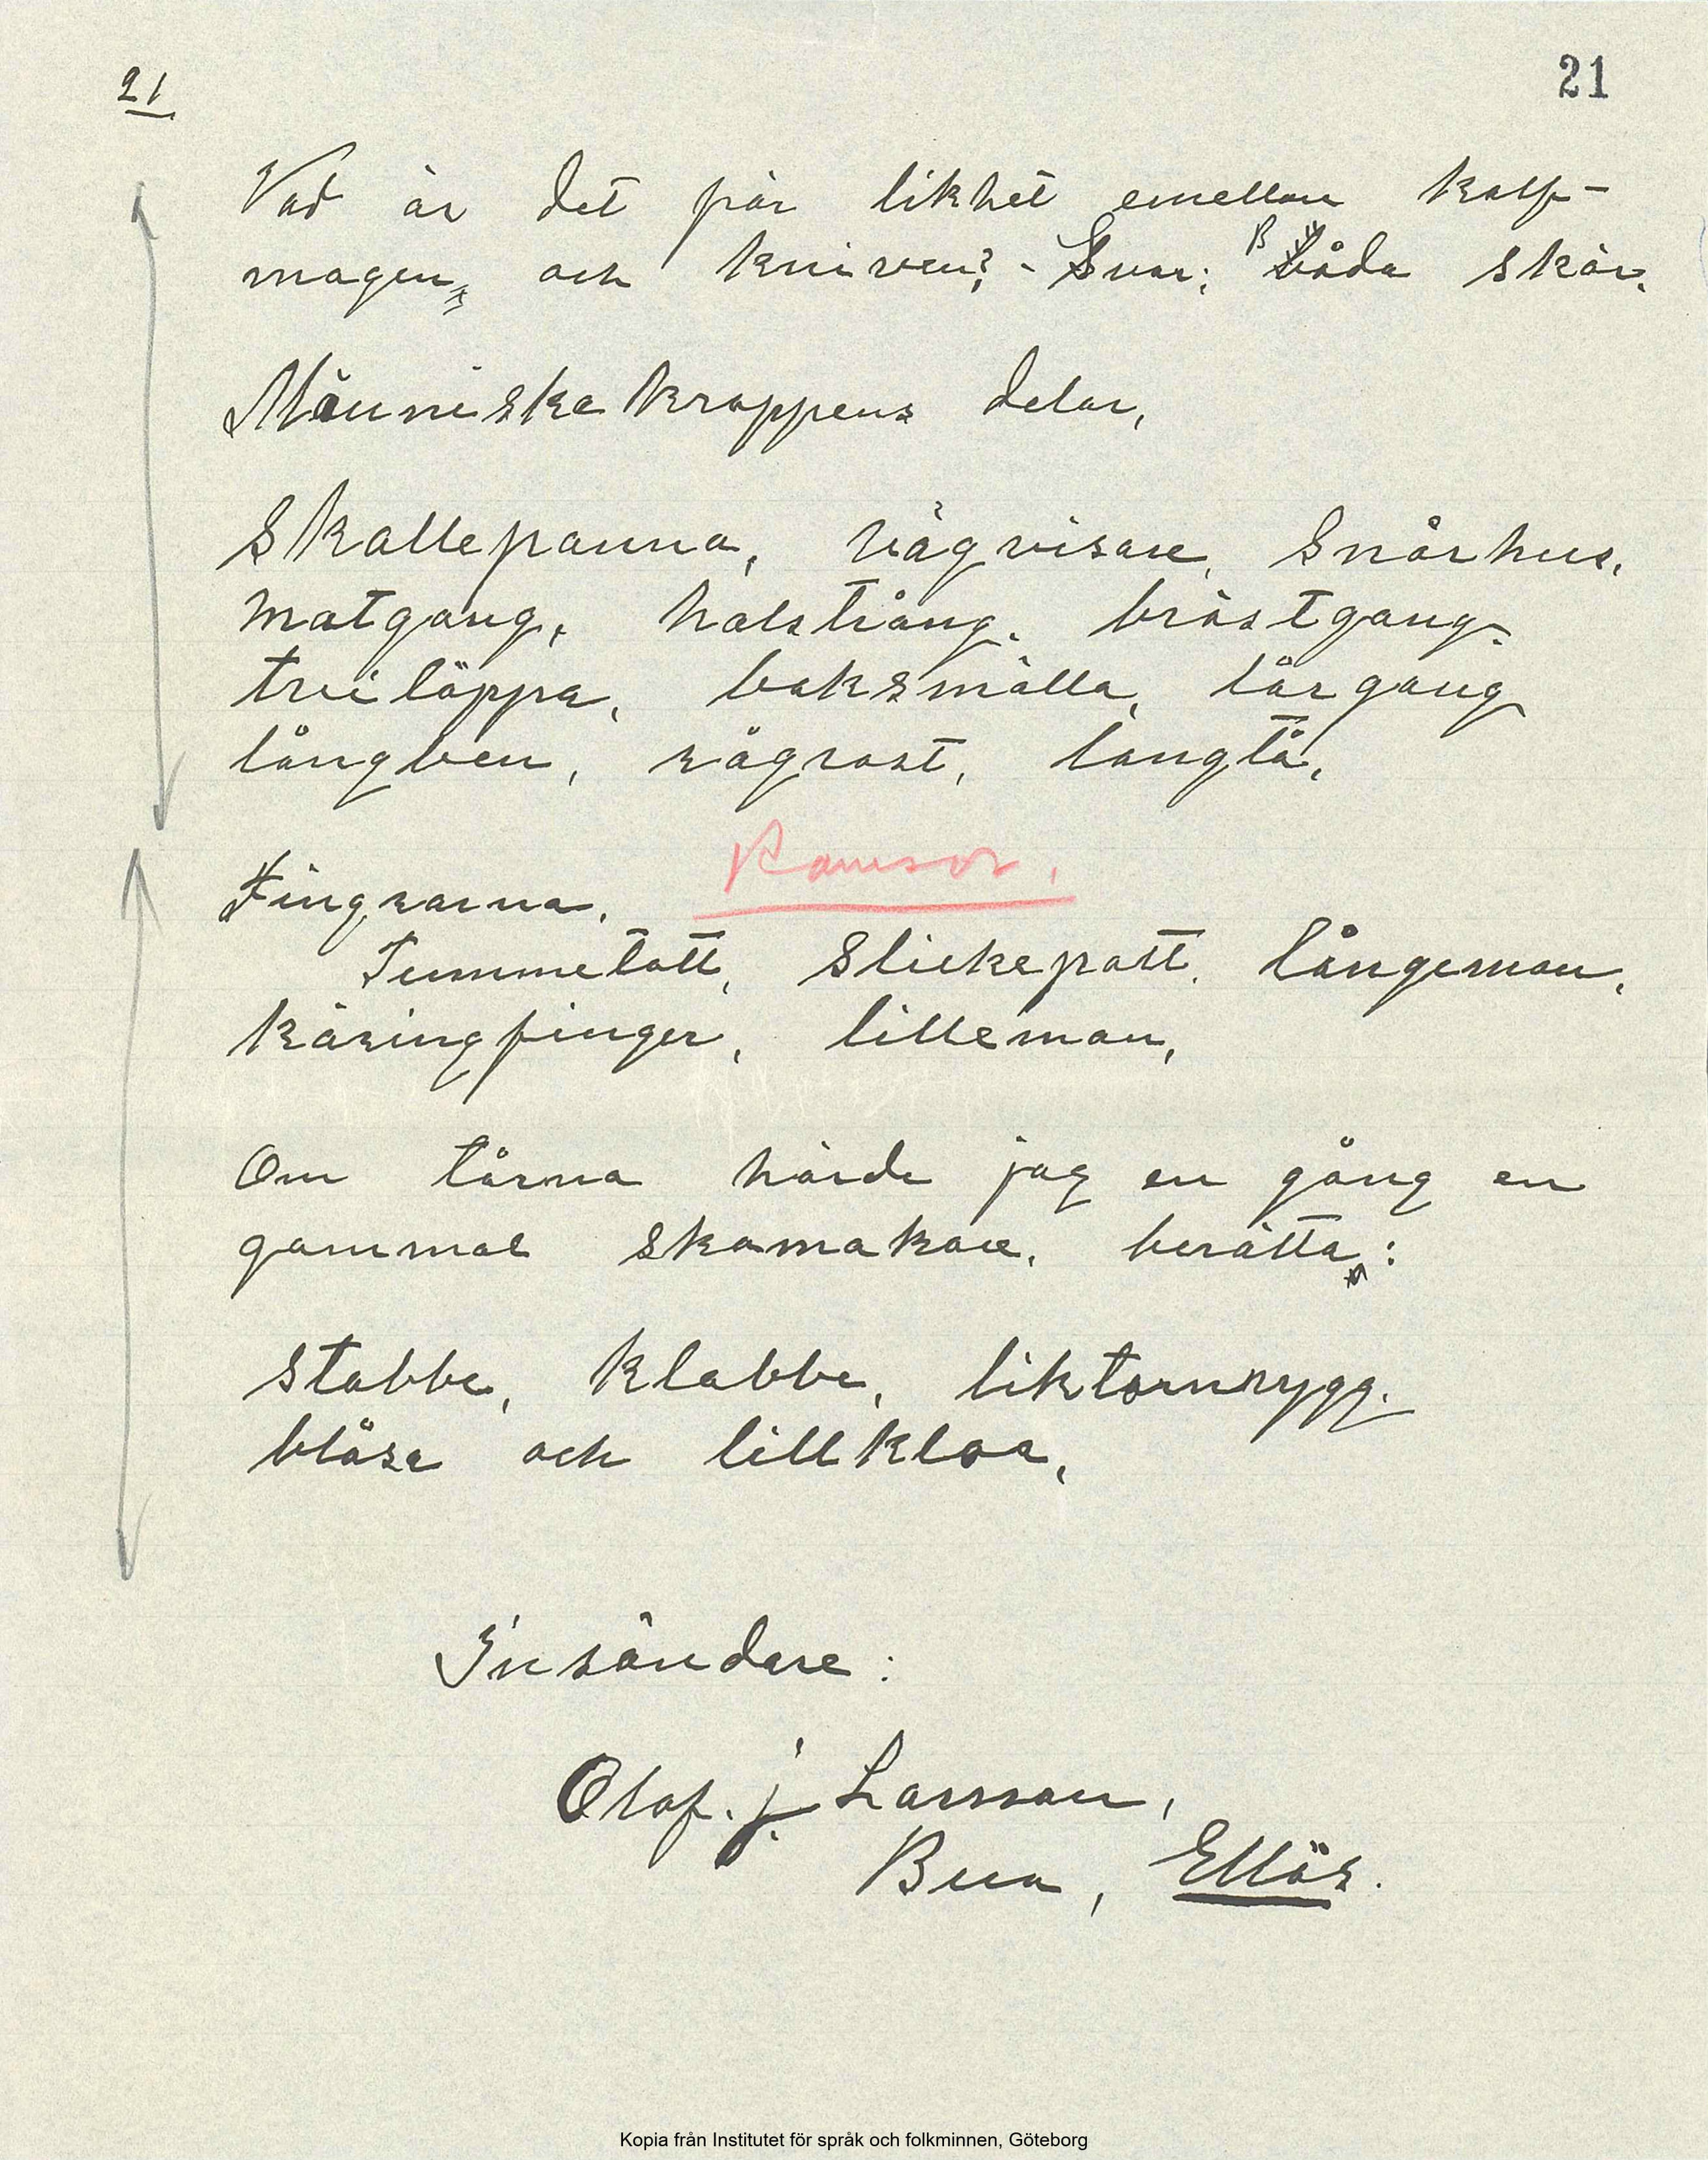 21
21.
Vad är det för likhet emellan kalf-
magen, och kniven? - Svar: Båda skär.
Människakroppens delar,
Skallepanna, vägvisare, Snörhus,
matgang, halstrång, bröstgang,
treilöppa, baksmälla, lårgang
långben, vågrast, langtå,
Ramsor.
Fingrarna,
Tummetott, Slickepott, långeman,
käringfinger, lilleman,
Om tårna hörde jag en gång en
gammal skomakare, berätta:
Stabbe, klabbe, liktornrygg,
blåsa och lillkloa,
Insändare:
Olof. j. Larsson,
Bua, Ellös.
Kopia från Institutet för språk och folkminnen, Göteborg